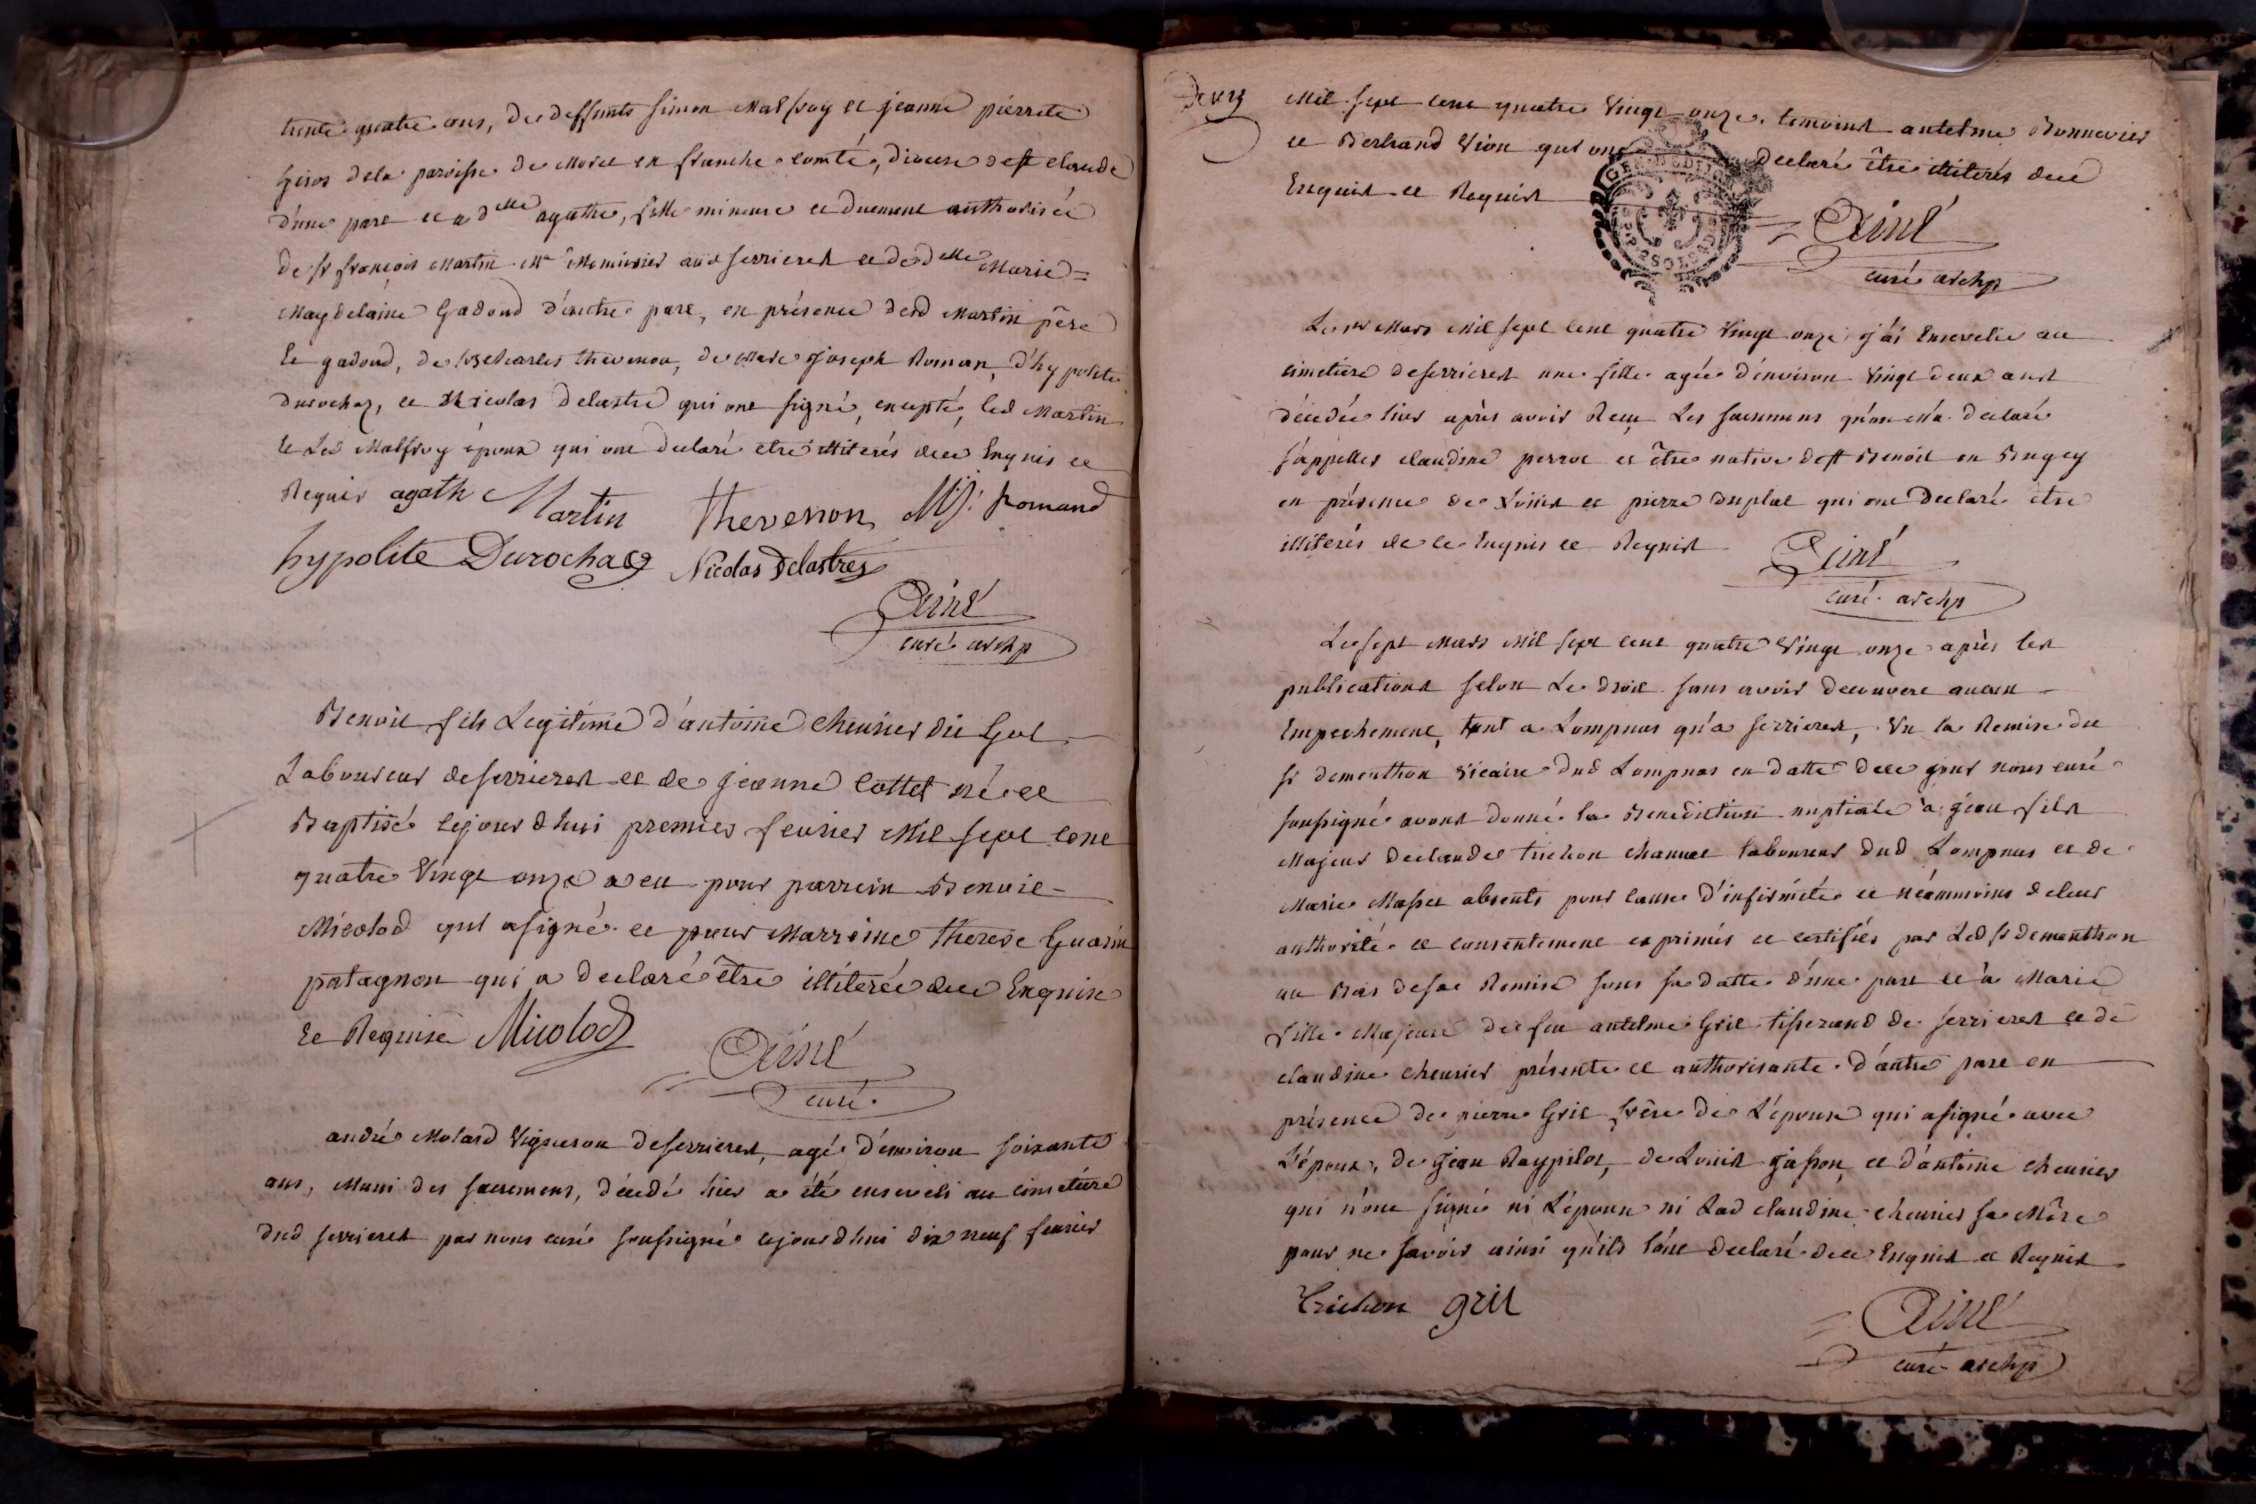 trente quatre ans, de deffunts simon Malfroy et jeanne pierrete
giros de la paroisse de Morez en franche comté, diocese de st claude
d'une part et a dlle agathe, fille mineure et duement authorisée
de sr françois Martin Me Menuisier aud serrieres et de dlle Marie=
Magdelaine Gadoud d'autre part, en présence desd Martin père
et gadoud, de sr Charles thevenon, de Marc joseph Roman, d'hypolite
durochaz, et Nicolas delastre qui ont signé, excepté, led Martin
et led Malfroy époux qui ont declaré etre illiterés dece Enquis et
Requis agathe Martin thevenon MJ. Romand
hypolite Durochaz Nicolas Delastres
Ainé
curé archp
Benoit fils Legitime d'antoine cheurier dit Gol
Laboureur de serrieres et de jeanne Cottet né et
Baptisé cejourdhui premier feurier Mil sept cent
quatre Vingt onze a eu pour parrein Benoit
Micolod qui a signé et pour Marreine therese Guarin
patagnon qui a declaré être illiterée dece Enquise
et Requise Micolod
Ainé
curé
andré Molard Vigneron de serrieres, agé d'environ soixante
ans, Muni des sacremens, décedé hier a été enseveli au cimetiere
dud serrieres par nous curé soussigné cejourdhui dix neuf feurier
Mil sept cent quatre Vingt onze. temoins antelme Bonnevier
et Bertrand Vion qui ont declaré être illiterés dece
Enquis et Requis
Ainé
curé archp
Le Mars Mil sept cent quatre Vingt onze j'ai Ensevelie au
cimetiere de serrieres une fille agée d'environ Vingt deux ans
décédée hier après avoir Reçu Les sacremens qu'on M'a declaré
s'appeller claudine perrot et être native de st Benoit en Bugey
en présence de Louis et pierre duplat qui ont declaré etre
illiterés de ce Enquis et Requis
Ainé
curé archp
Le sept Mars Mil sept cent quatre Vingt onze après les
publications selon Le droit sans avoir decouvert aucun
Empechement, tant a Lompnas qu'a serrieres, Vu la Remise du
sr dementhon vicaire dud Lompnas en datte dece jour nous curé
soussigné avons donné la Benediction nuptiale a jean fils
Majeur de claude trichon channet laboureur dud Lompnas et de
Marie Masset absents pour cause d'infirmité et néammoins de leur
authorité et consentement exprimés et certifiés par Led sr dementhon
au Bas de sa Remise sous sa datte d'une part et a Marie
fille Majeure de feu antelme Gril tisserand de serrieres et de
claudine cheurier présente et authorisante d'autre part en
présence de pierre Gril frère de L'épouse qui a signé avec
L'époux, de jean Raypilot, de Louis japon et d'antoine cheurier
qui n'ont signé ni L'épouse ni Lad claudine cheurier sa Mère
pour ne savoir ainsi qu'ils l'ont declaré dece Enquis et Requis
trichon gril
Ainé
curé archp